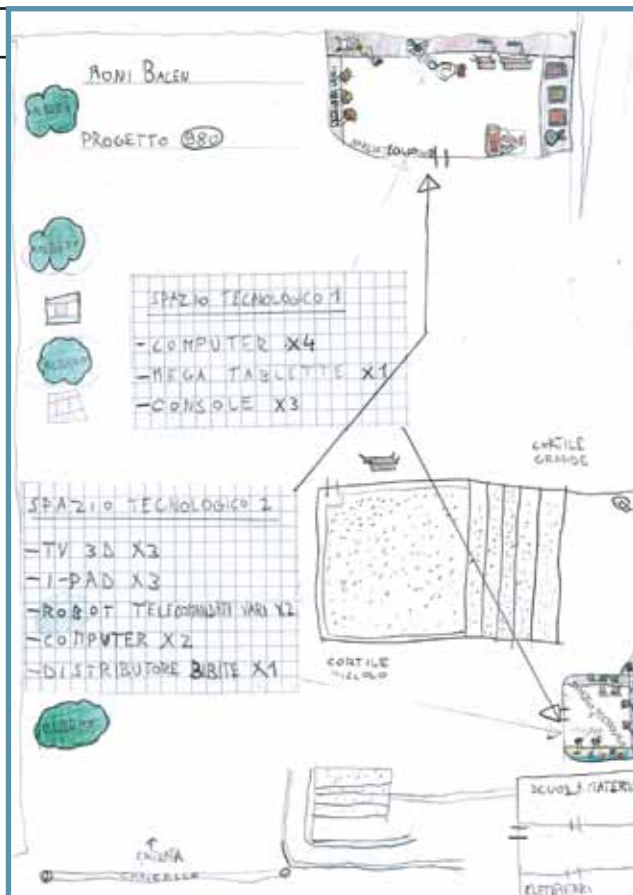 RONI BALEN
PROGETTO 980
SPAZIO TECNOLOGICO 1
-COMPUTER X4
-MEGA TABLETTE X1
-CONSOLE X3
CORTILE
GRANDE
SPAZIO TECNOLOGICO 2
-TV 3D X3
-I-PAD X3
-ROBOT TELECOMANDATI VARI X2
-COMPUTER X2
-DISTRIBUTORE BIBITE X1
CORTILE
PICCOLO
SCUOLA MATERN
CANCELLO